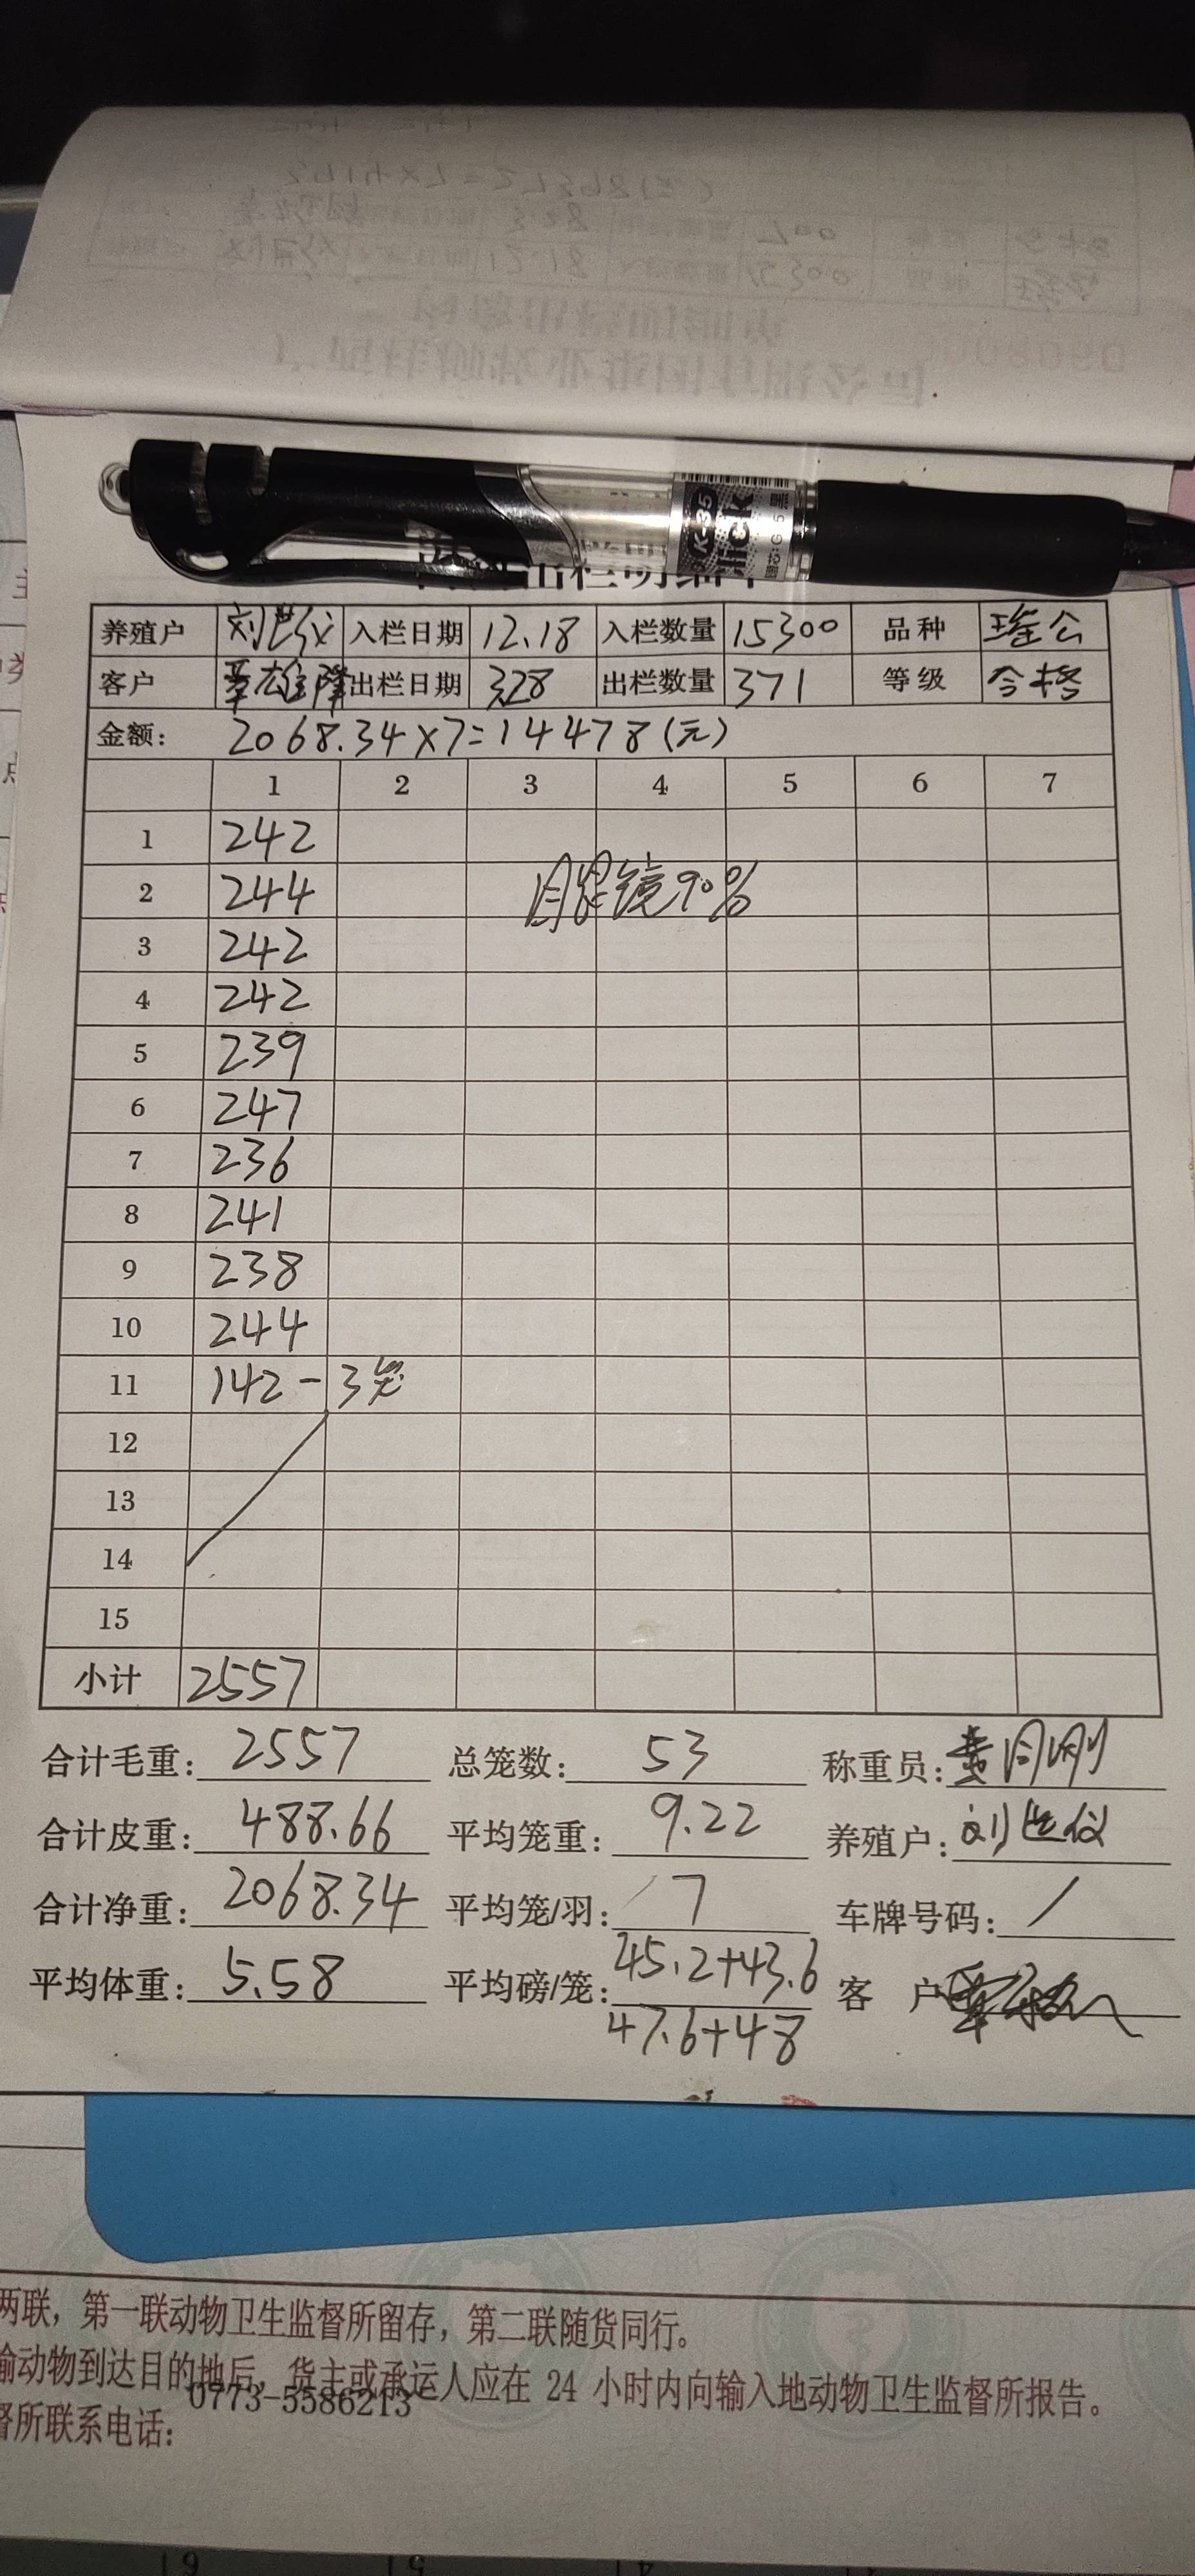 K-35
出栏明细
养殖户 刘世仪 入栏日期 12.18 入栏数量 15300 品种 瑶公
客户 出栏日期 3.28 出栏数量 371 等级 合格
金额: 2068.34×7=14478(元)
1 2 3 4 5 6 7
1 242
2 244 眼镜90%
3 242
4 242
5 239
6 247
7 236
8 241
9 238
10 244
11 142-3笼
12
13
14
15
小计 2557
合计毛重: 2557 总笼数: 53 称重员:
合计皮重: 488.66 平均笼重: 9.22 养殖户: 刘世仪
合计净重: 2068.34 平均笼/羽: 7 车牌号码: /
平均体重: 5.58 平均磅/笼: 45.2+43.6 客 户
47.6+48
两联，第一联动物卫生监督所留存，第二联随货同行。
输动物到达目的地后，货主或承运人应在 24 小时内向输入地动物卫生监督所报告。
督所联系电话: 0773-5586213